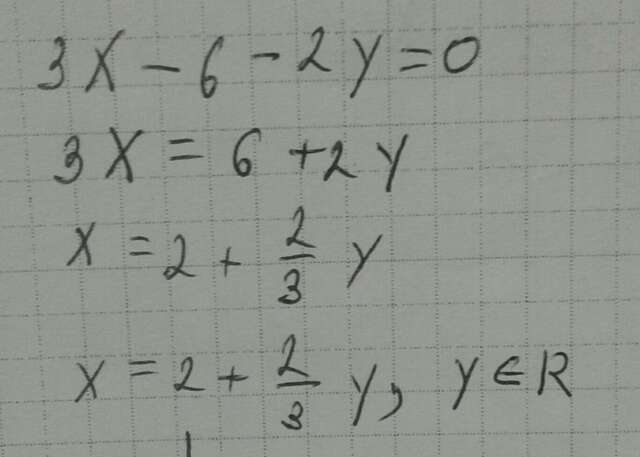 3x - 6 - 2y = 0
3x = 6 + 2y
x = 2 + 2/3 y
x = 2 + 2/3 y, y ∈ R